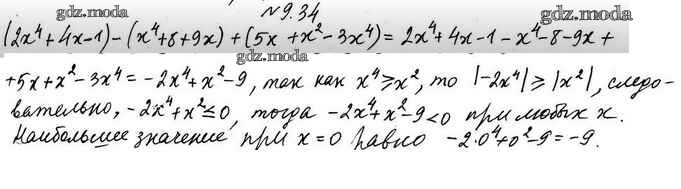 gdz.moda № 9.34 gdz.moda
(2x⁴+4x-1)-(x⁴+8+9x)+(5x+x²-3x⁴)=2x⁴+4x-1-x⁴-8-9x+
gdz.moda
+5x+x²-3x⁴=-2x⁴+x²-9, так как x⁴⩾x², то |-2x⁴|⩾|x²|, следо-
вательно, -2x⁴+x²≤0, тогда -2x⁴+x²-9<0 при любых x.
Наибольшее значение при x=0 равно -2·0⁴+0²-9=-9.
gdz.moda gdz.moda